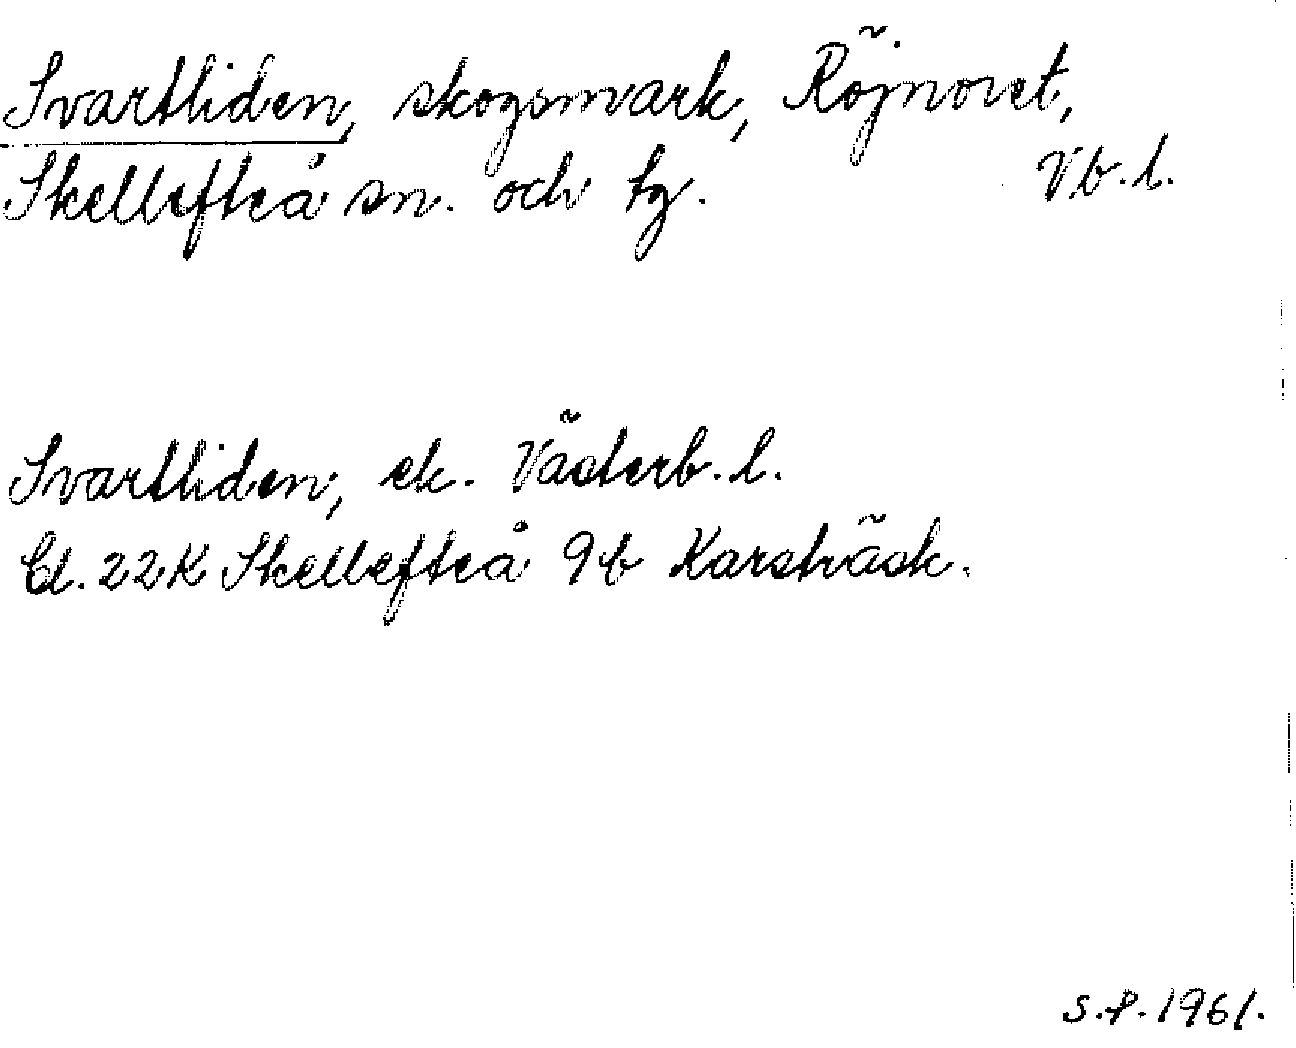 Svartliden, skogsmark, Röjnoret,
Skellefteå sn. och tg. Vb. l.
Svartliden, ek. Västerb. l.
Bl. 22K Skellefteå 9b Karsträsk.
S.P. 1961.